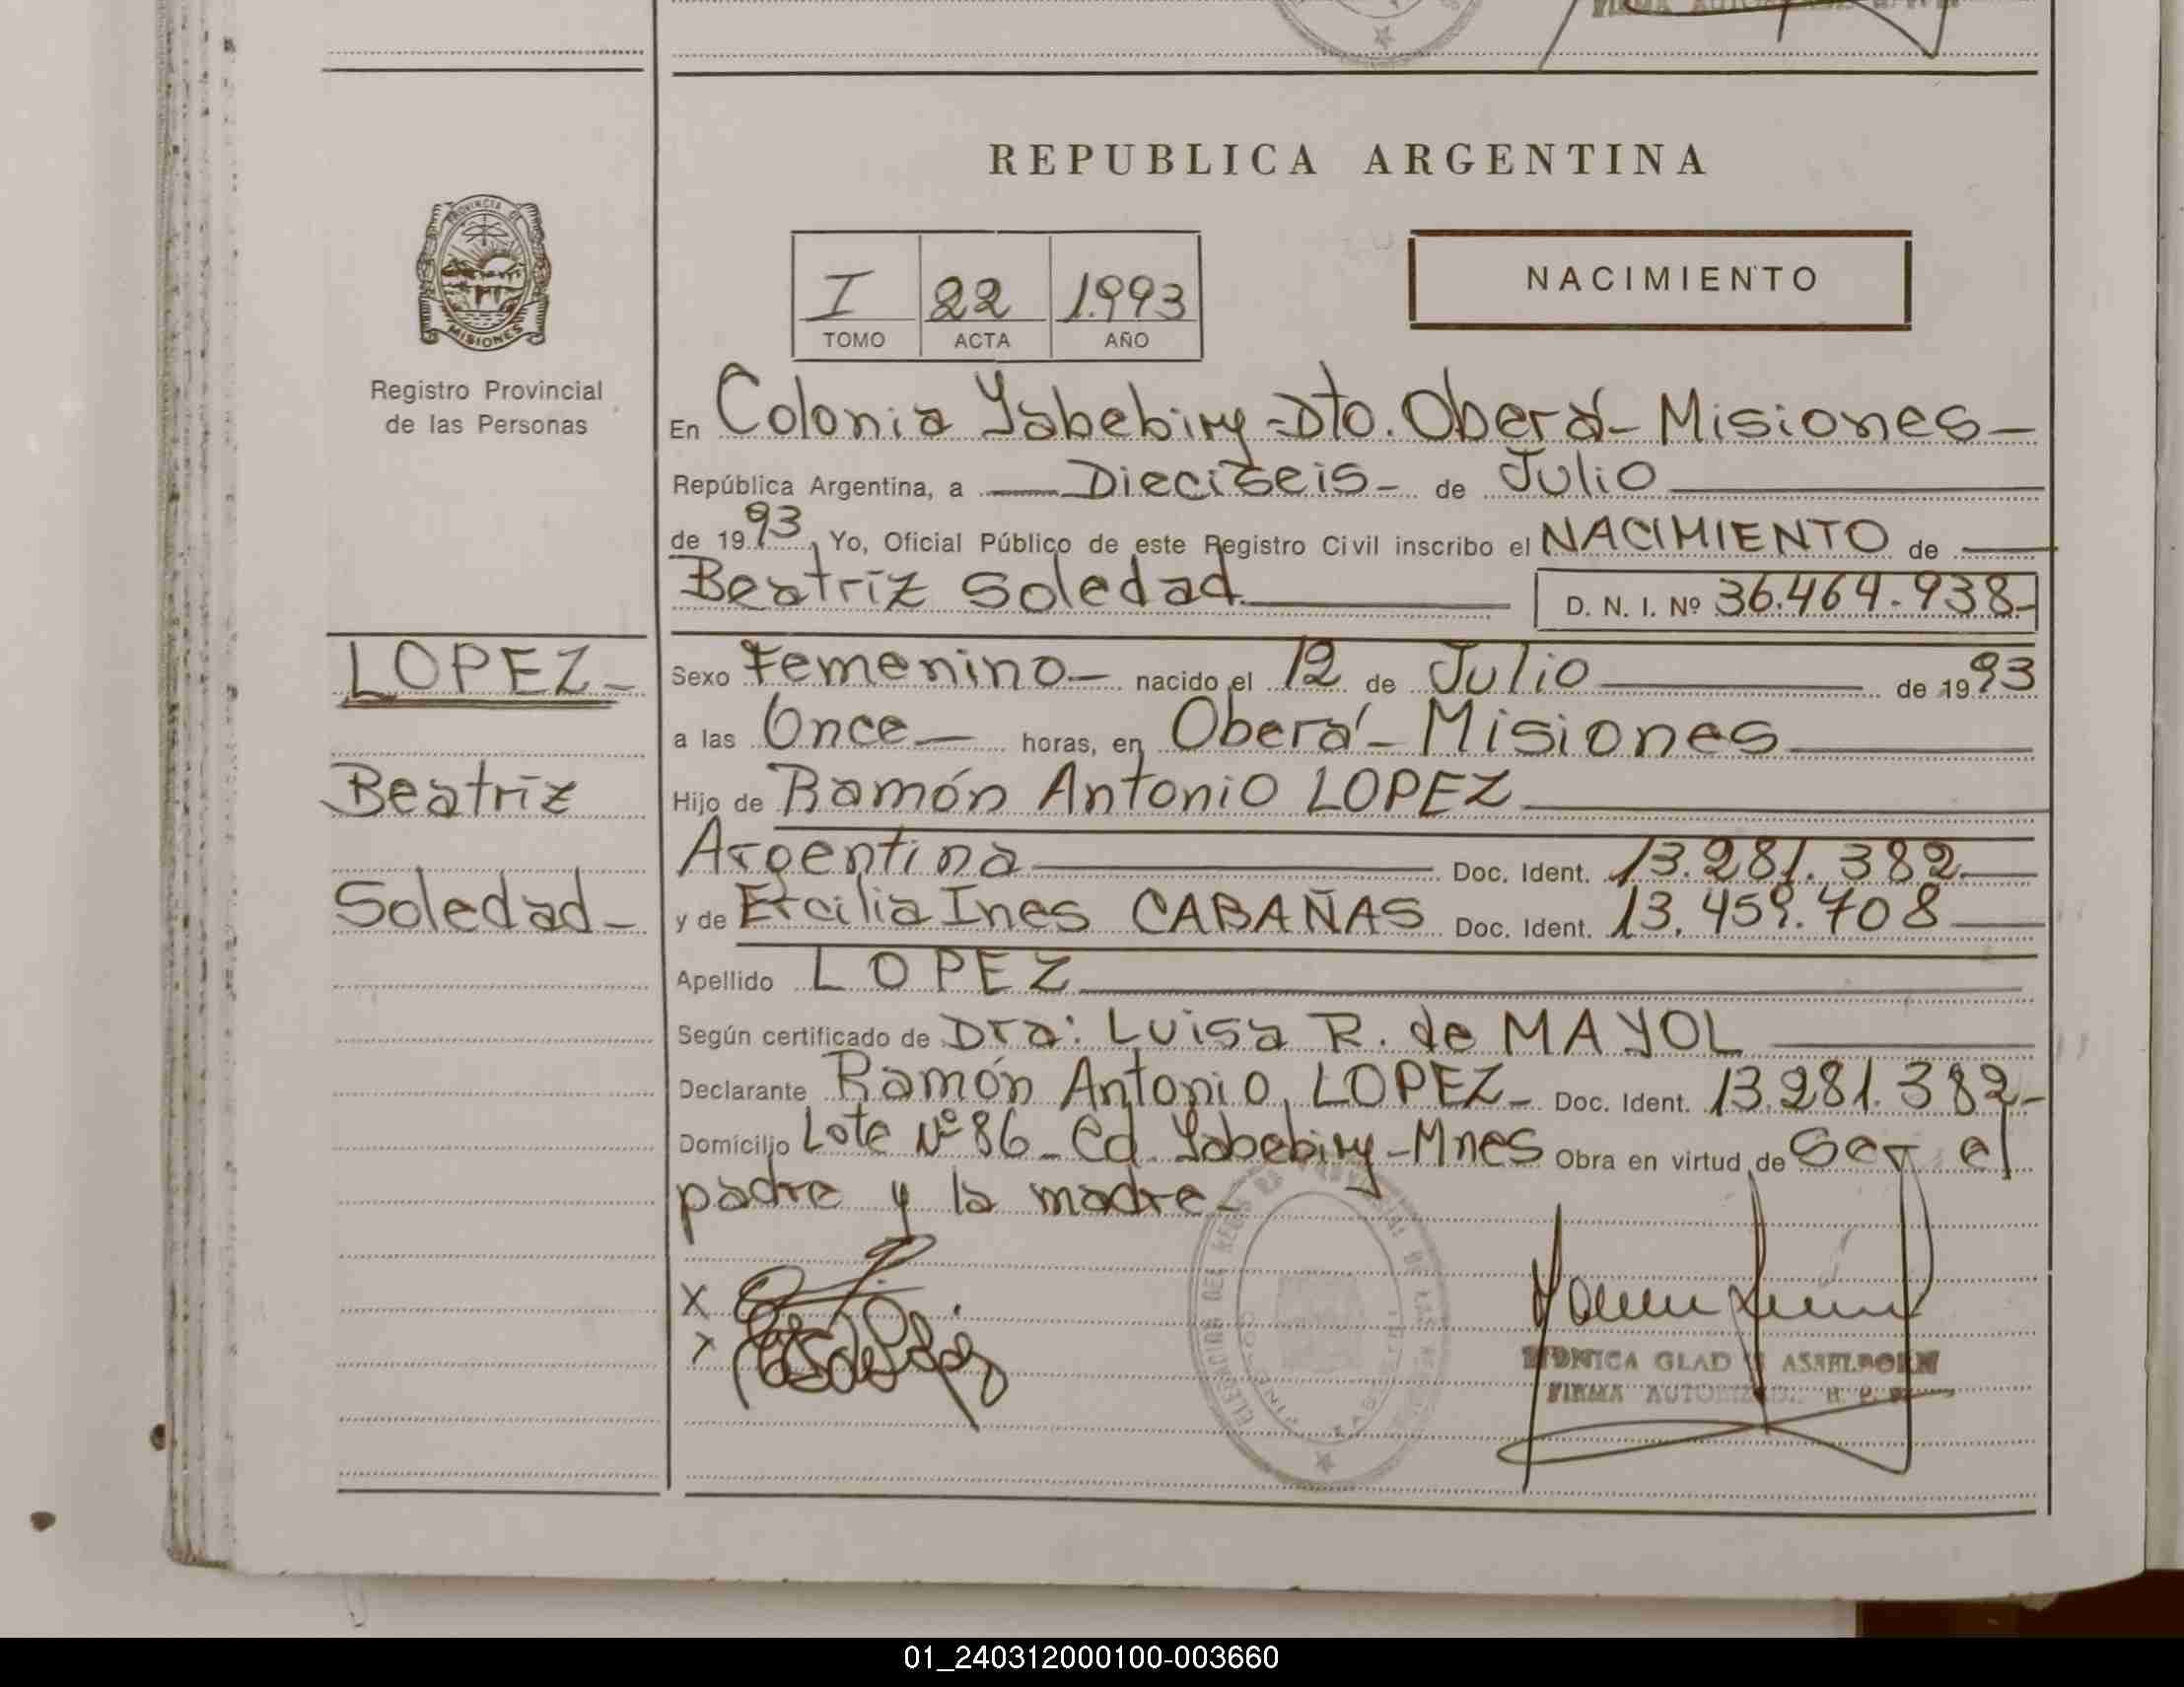 REPUBLICA ARGENTINA
PROVINCIA DE
MISIONES
Registro Provincial
de las Personas
I 22 1.993
TOMO ACTA AÑO
NACIMIENTO
En Colonia Yabebiry-Dto. Oberá-Misiones-
República Argentina, a Dieciseis- de Julio
de 1993, Yo, Oficial Público de este Registro Civil inscribo el NACIMIENTO de
Beatriz Soledad D. N. I. Nº 36.464.938-
LOPEZ-
Beatriz
Soledad-
Sexo Femenino- nacido el 12 de Julio de 1993
a las Once- horas, en Oberá-Misiones
Hijo de Ramón Antonio LOPEZ
Argentina Doc. Ident. 13.281.382
y de Ercilia Ines CABAÑAS Doc. Ident. 13.459.708
Apellido LOPEZ
Según certificado de Dra: Luisa R. de MAYOL
Declarante Ramón Antonio LOPEZ- Doc. Ident. 13.281.382-
Domicilio Lote Nº 86- Cd. Yabebiry-Mnes Obra en virtud de Ser el
padre y la madre-
X
MONICA GLAD ASSELBORN
FIRMA
01_240312000100-003660